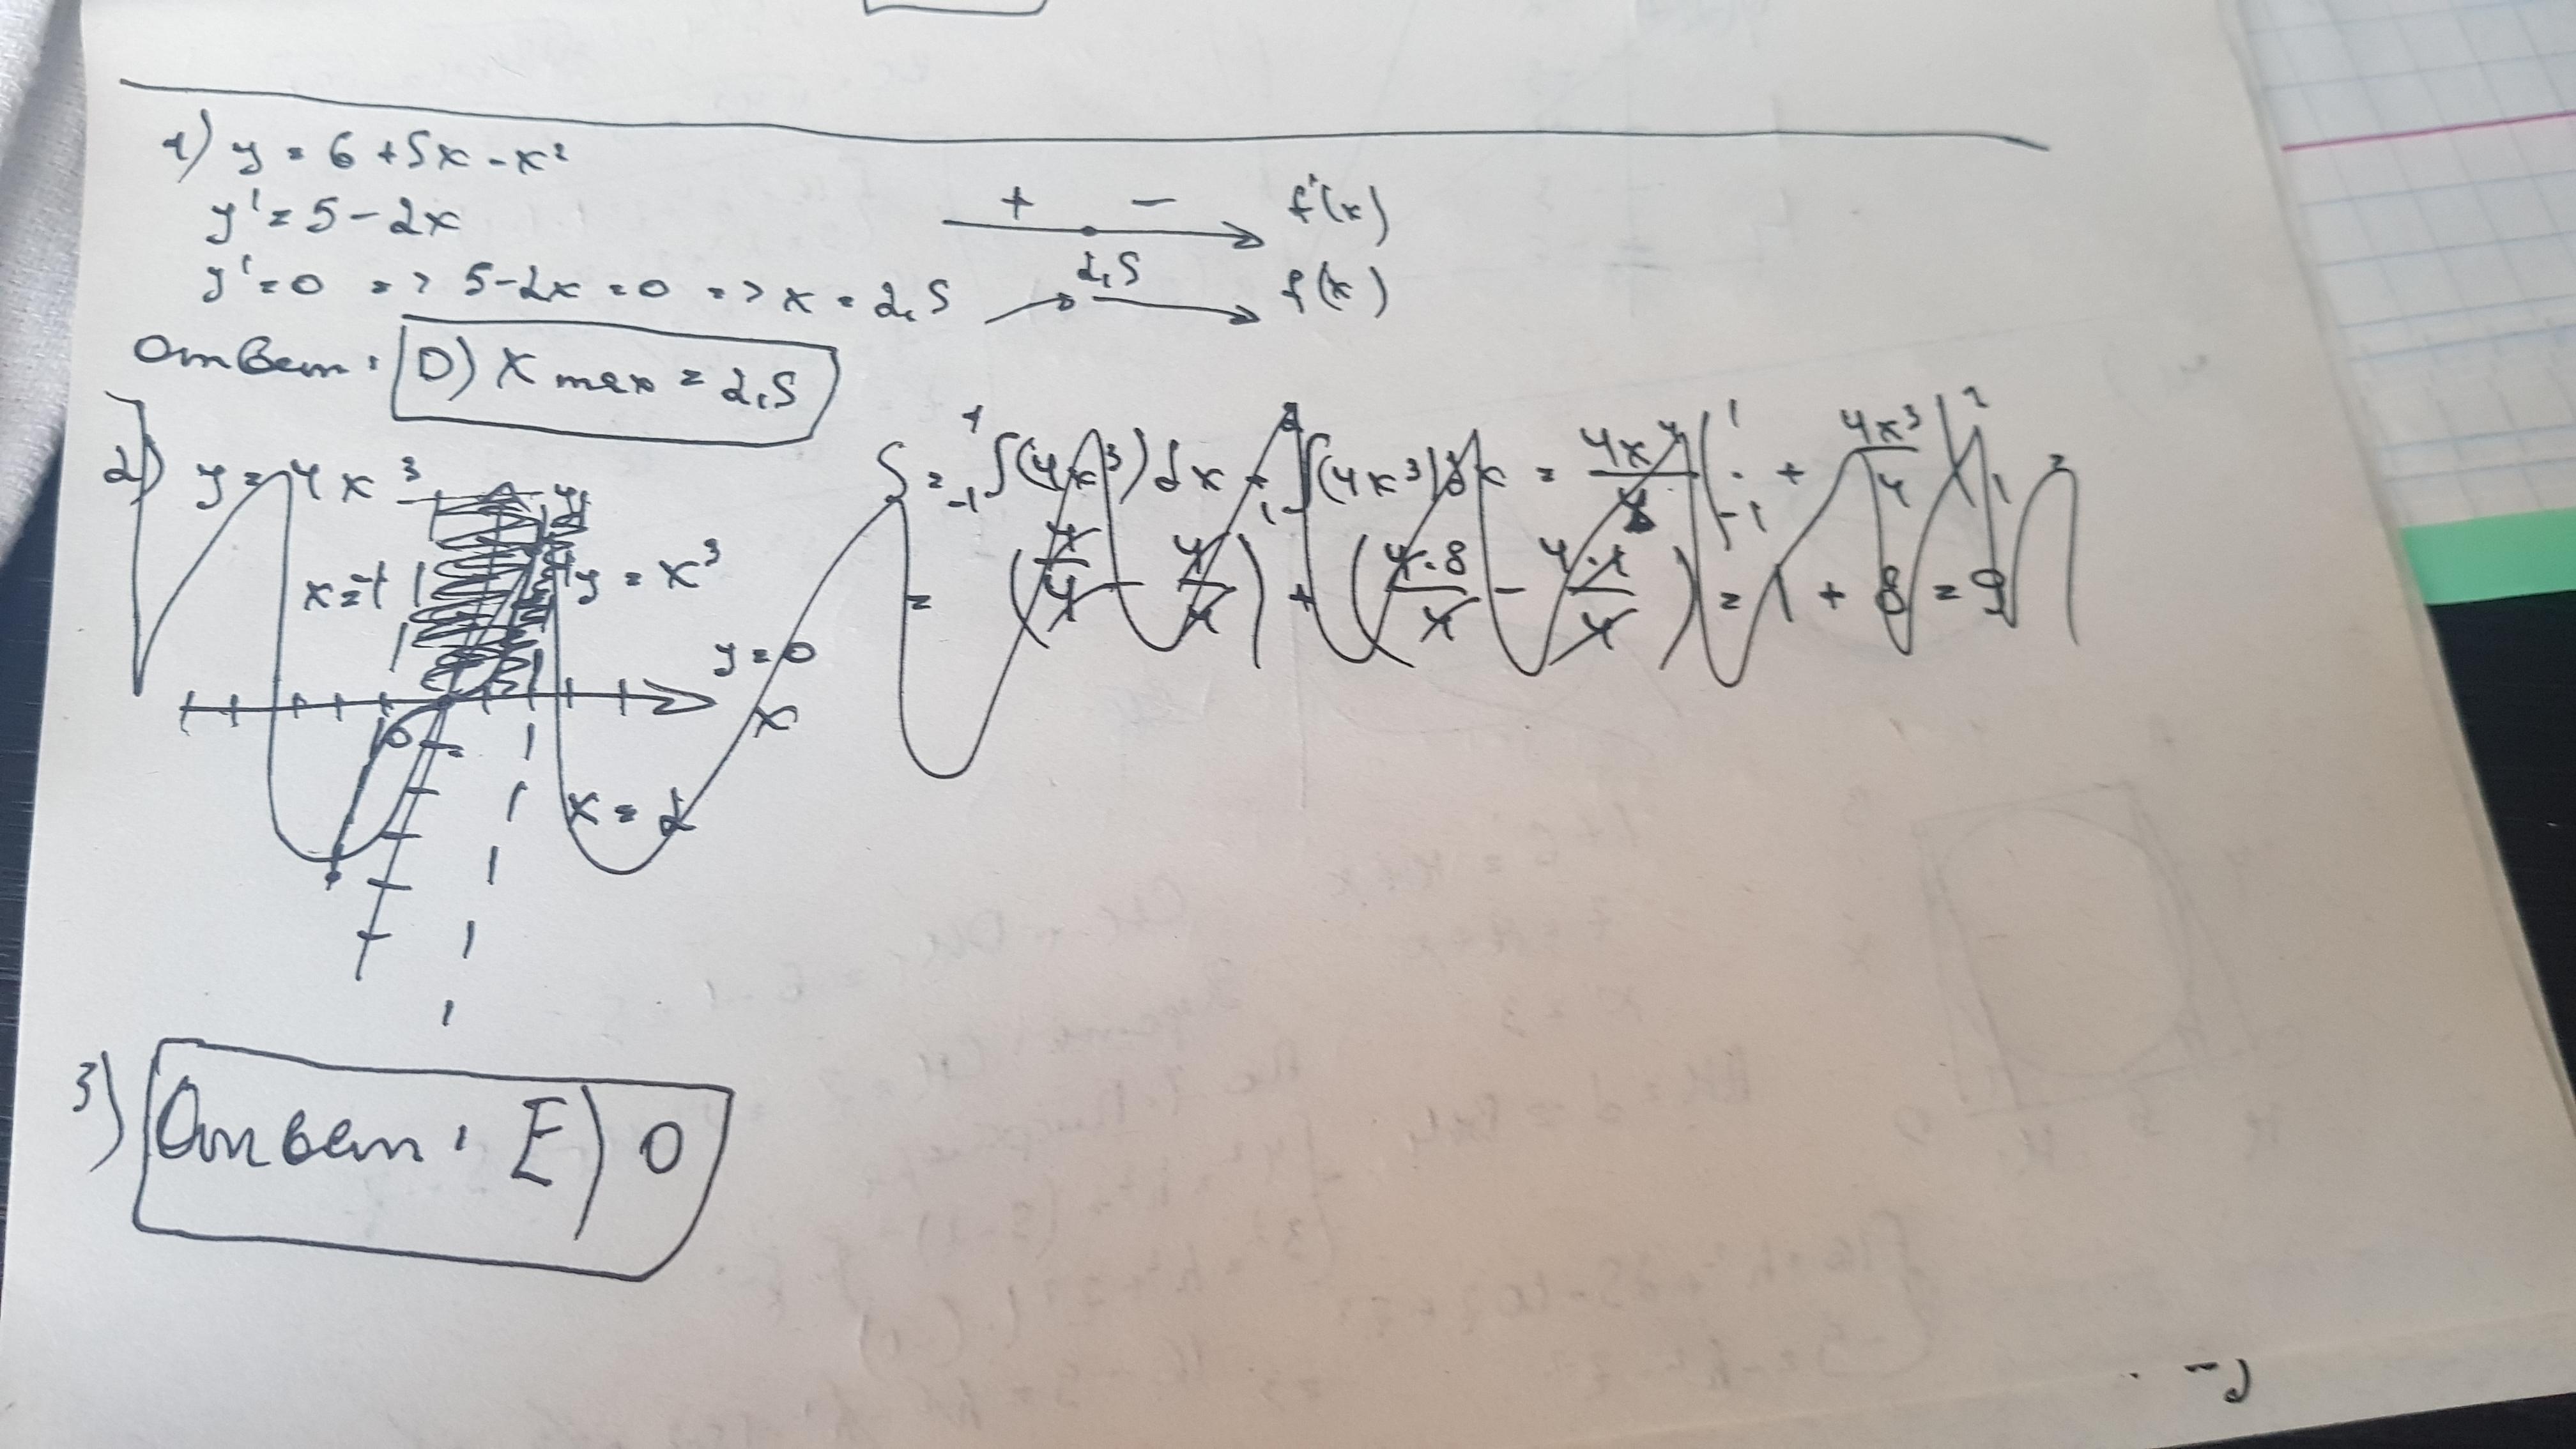 1) y = 6 + 5x - x²
y' = 5 - 2x
+ - f'(x)
2,5
y' = 0 => 5-2x = 0 => x = 2,5 f(x)
Ответ: D) x max = 2,5
2) y = 4x³
x = -1
y = x³
y = 0
x
x = 2
S = ₋₁∫¹(4x³)dx + ₁∫(4x³)dx = 4x⁴/4 |¹₋₁ + 4x³/4 |²₁ =
= (4/4 - 4/4) + (4·8/4 - 4·1/4) = 1 + 8 = 9
3) Ответ: E) 0